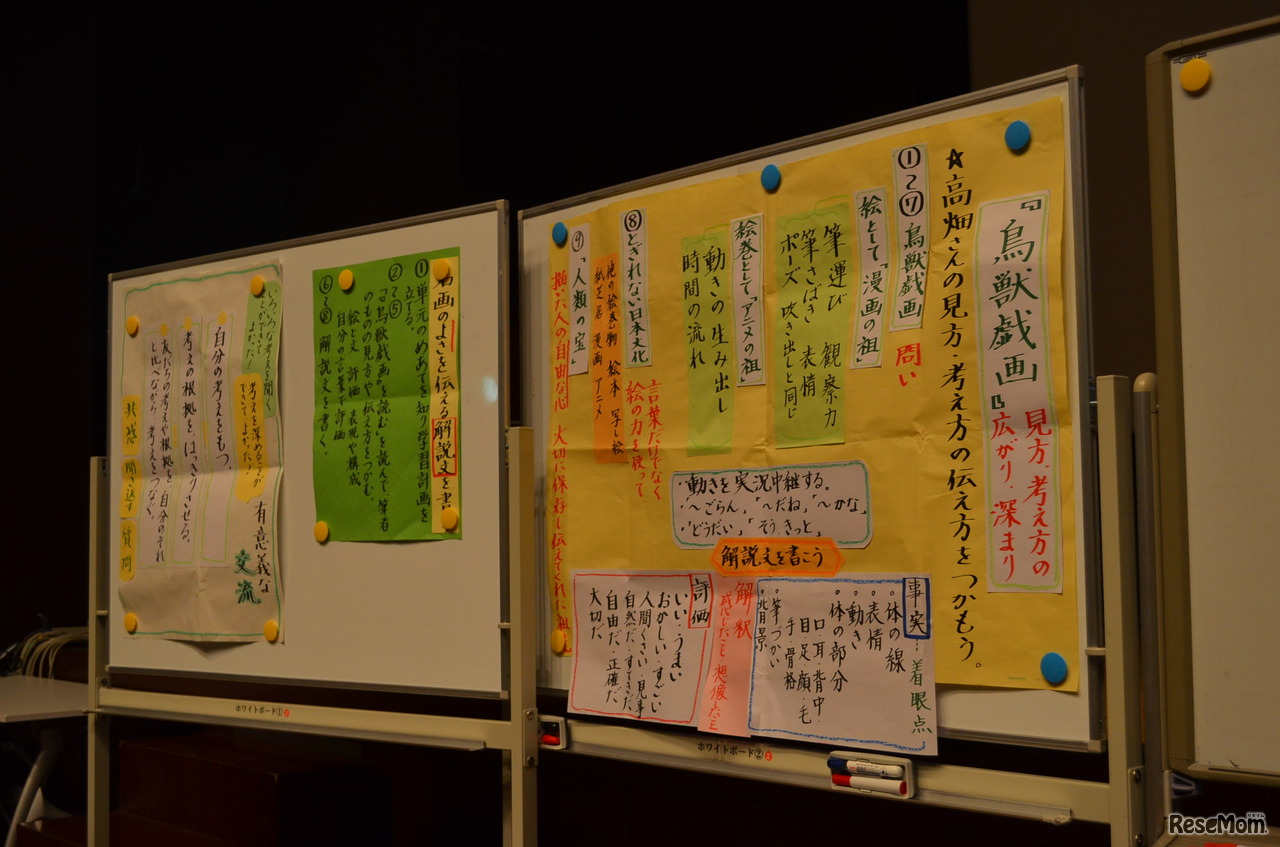 『鳥獣戯画』
見方・考え方の
広がり・深まり
☆高畑さんの見方・考え方の伝え方をつかもう。
①〜⑦鳥獣戯画
問い
絵として「漫画の祖」
筆運び 観察力
筆さばき 表情
ポーズ 吹き出しと同じ
絵巻として「アニメの祖」
動きの生み出し
時間の流れ
⑧とぎれない日本文化
言葉だけでなく
絵の力を使って
他の絵巻物 絵本 写し絵
紙芝居 漫画 アニメ
⑨「人類の宝」
描いた人の自由な心 大切に保存し伝えてくれた祖先
・動きを実況中継する。
・「〜ごらん」「〜だね」「〜かな」
「どうだい」「そう きっと」
解説文を書こう
事実…着眼点
・体の線
・表情
・動き
・体の部分
口・耳・背中・
目・足・顔・毛
手・骨格
・筆づかい
・背景
解釈
感じたこと 想像したこと
評価
いい・うまい
おかしい・すごい
人間くさい・見事
自然だ・すてきだ
自由だ・正確だ
大切だ
名画のよさを伝える解説文を書
①単元のめあてを知り学習計画を
立てる。
②〜⑤
『鳥獣戯画』を読む を読んで筆者
のものの見方や伝え方をつかむ。
絵と文 評価 表現や構成
自分の言葉で評価
⑥〜⑧ 解説文を書く。
いろいろな考えを聞く
ことができて
よかった!
考えを深めることが
できてよかった!
有意義な
交流
自分の考えをもつ。
考えの根拠を はっきりさせる。
友だちの考えや根拠を 自分のそれ
と比べながら 考えをつなぐ。
共感 聞き返す 質問
ホワイトボード①
ホワイトボード②
ReseMom